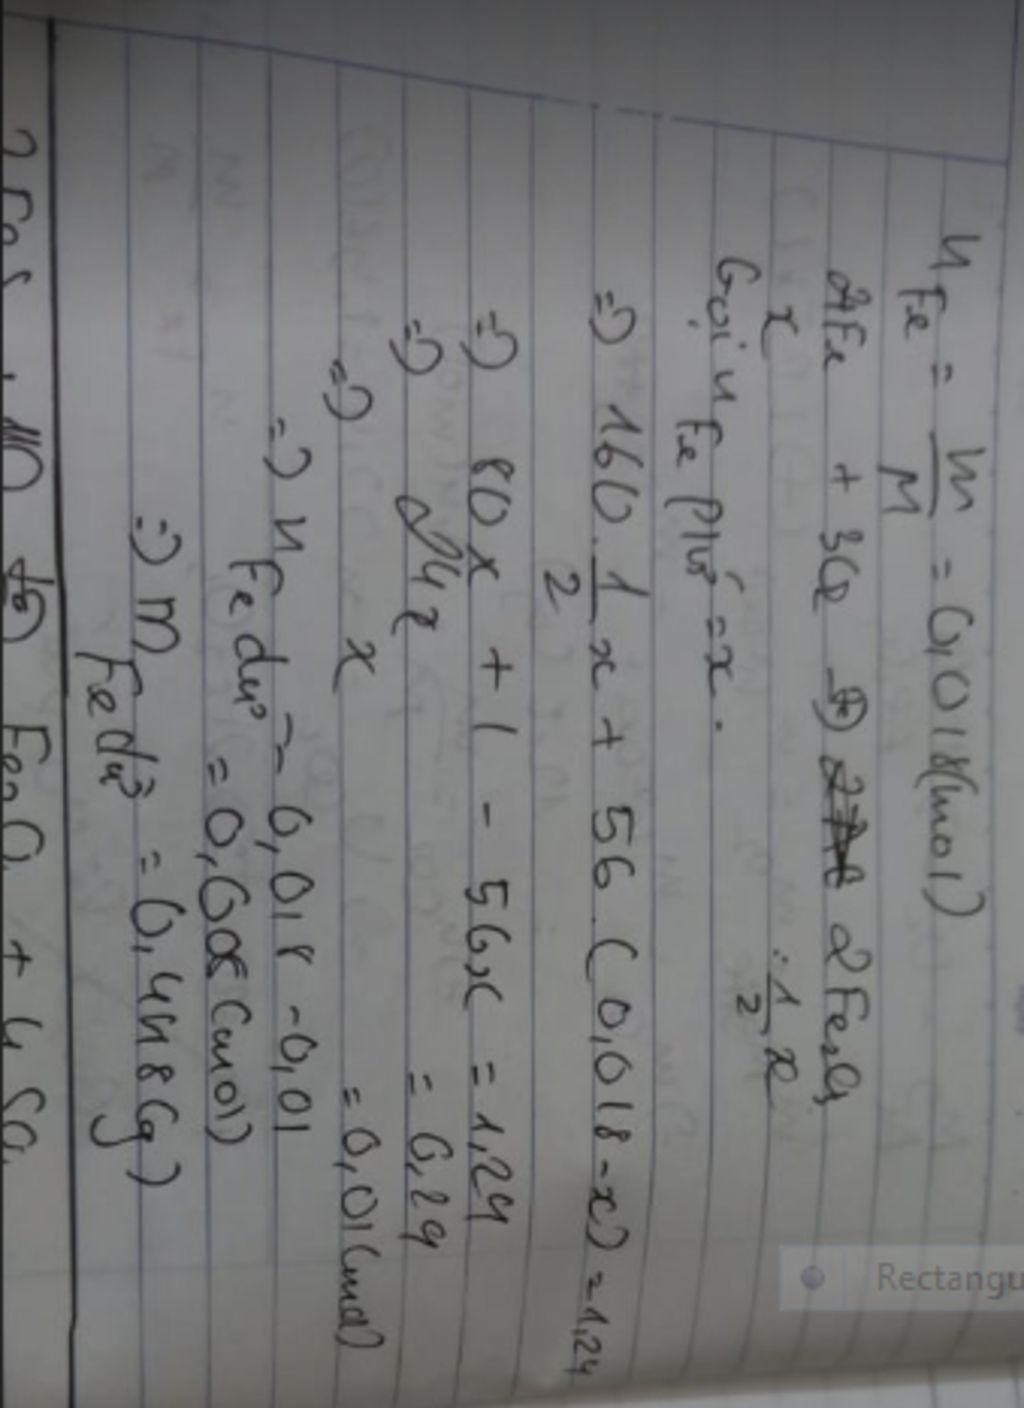 n Fe = m/M = 0,018(mol)
2Fe + 3Cl2 → 2FeCl3
x : 1/2 x
Gọi n Fe pứ = x.
=> 160 . 1/2 x + 56 . (0,018 - x) = 1,24
=> 80x + 1 - 56x = 1,24
=> 24x = 0,24
=> x = 0,01(mol)
=> n Fe dư = 0,018 - 0,01
= 0,008(mol)
=> m Fe dư = 0,448(g)
+ 4 SO
Rectangu